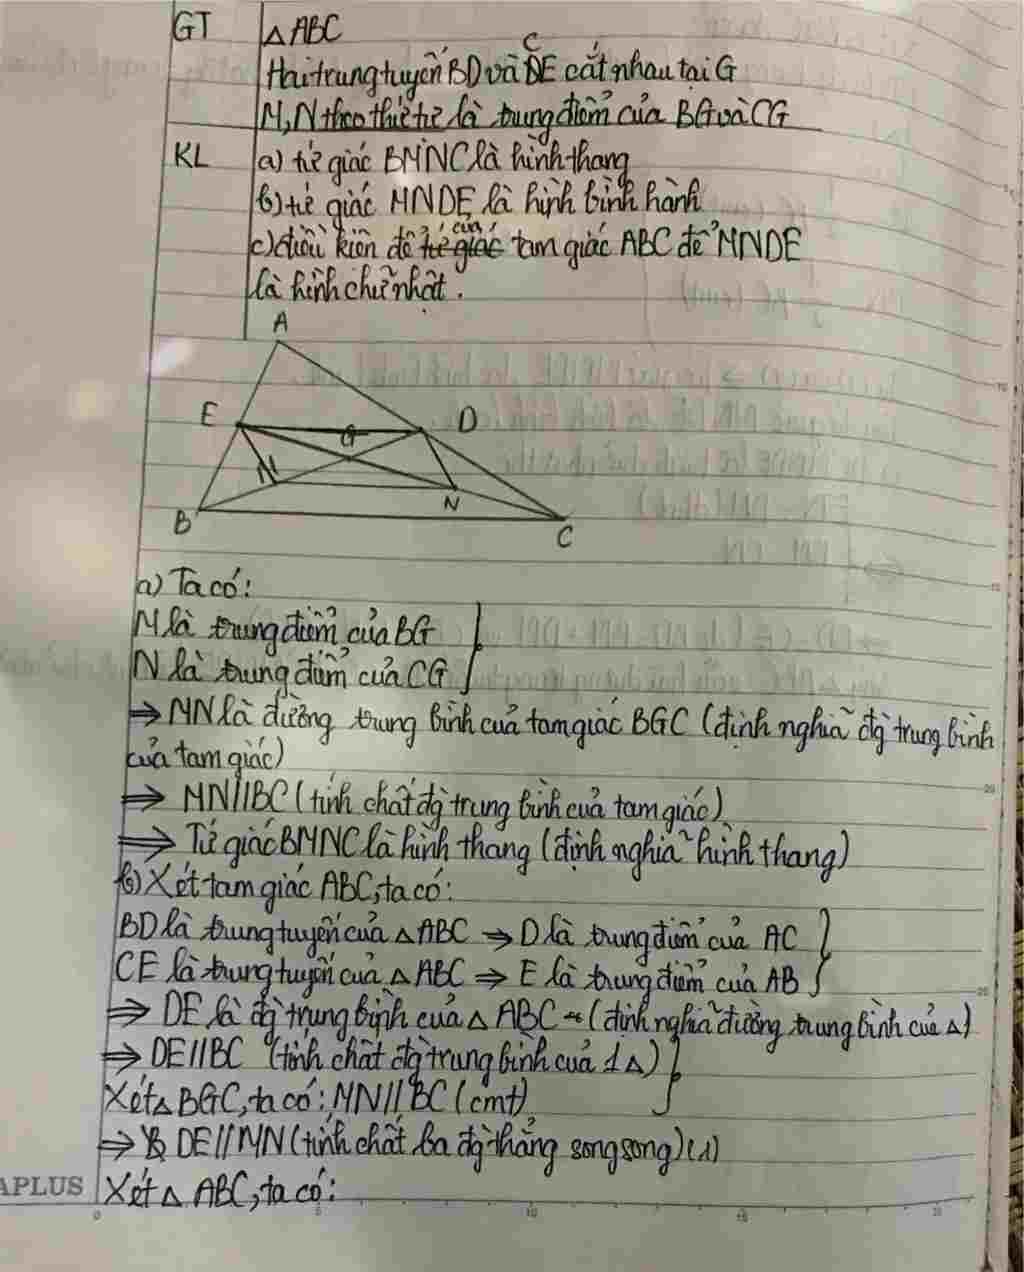 GT △ABC
Hai trung tuyến BD và CE cắt nhau tại G
M, N theo thứ tự là trung điểm của BG và CG
KL a) tứ giác BMNC là hình thang
b) tứ giác MNDE là hình bình hành
c) điều kiện để tứ giác của tam giác ABC để MNDE
là hình chữ nhật.
A
E
D
G
M
N
B
C
a) Ta có:
M là trung điểm của BG
N là trung điểm của CG
⇒ MN là đường trung bình của tam giác BGC (định nghĩa đg trung bình
của tam giác)
⇒ MN//BC (tính chất đg trung bình của tam giác)
⇒ Tứ giác BMNC là hình thang (định nghĩa hình thang)
b) Xét tam giác ABC, ta có:
BD là trung tuyến của △ABC ⇒ D là trung điểm của AC
CE là trung tuyến của △ABC ⇒ E là trung điểm của AB
⇒ DE là đg trung bình của △ABC (định nghĩa đường trung bình của △)
⇒ DE//BC (tính chất đg trung bình của 1△)
Xét △BGC, ta có: MN//BC (cmt)
⇒ DE//MN (tính chất ba đg thẳng song song) (1)
APLUS Xét △ABC, ta có:
0 5 10 15 20